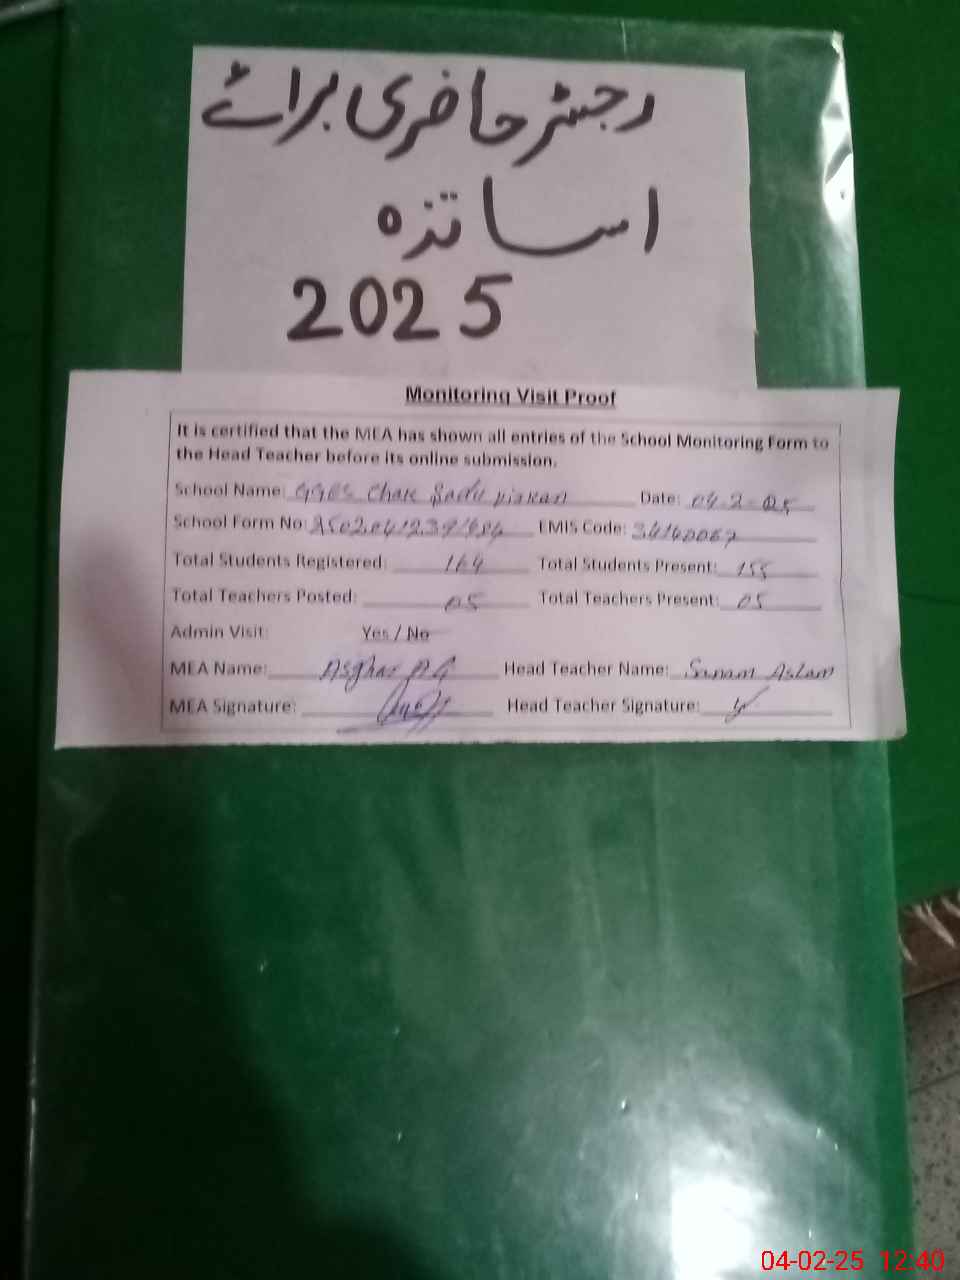 رجسٹر حاضری برائے
اساتذہ
2025
Monitoring Visit Proof
It is certified that the MEA has shown all entries of the School Monitoring Form to
the Head Teacher before its online submission.
School Name: GGES Chak Date: 04-2-25
School Form No: EMIS Code: 34140067
Total Students Registered: 164 Total Students Present: 155
Total Teachers Posted: 05 Total Teachers Present: 05
Admin Visit: Yes / No
MEA Name: Asghar Ali Head Teacher Name: Sanam Aslam
MEA Signature: Head Teacher Signature:
04-02-25 12:40